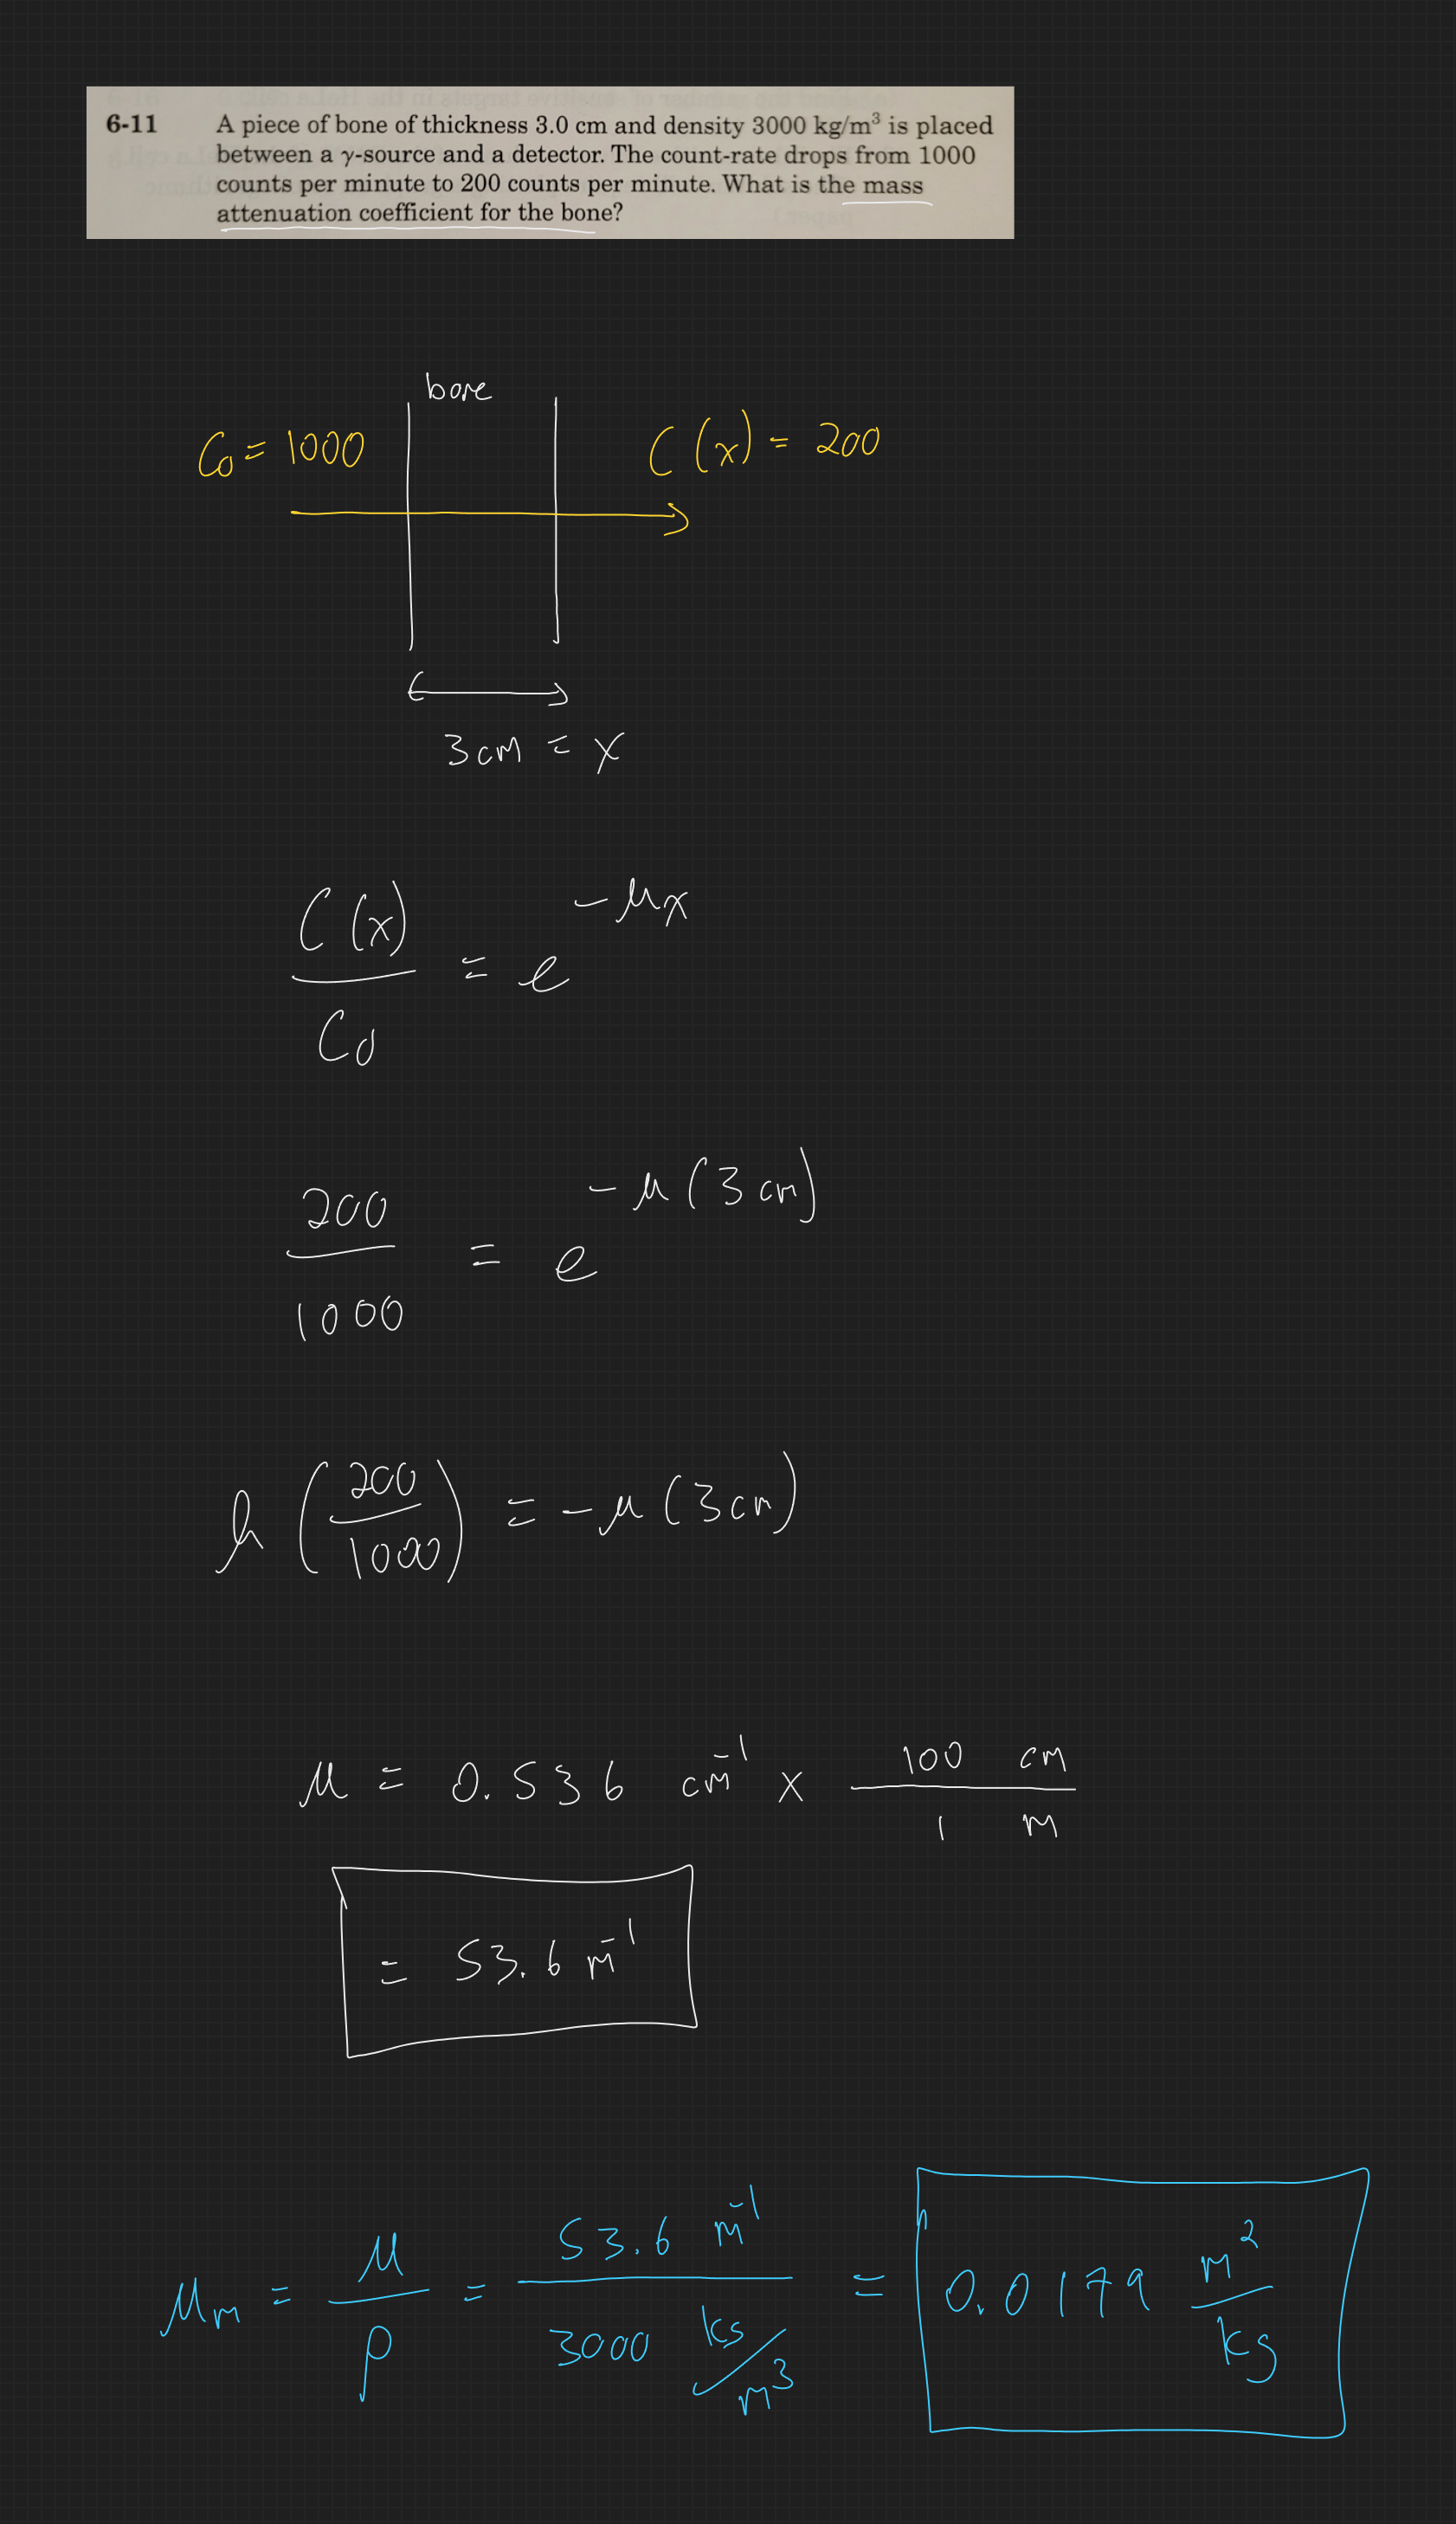 6-11 A piece of bone of thickness 3.0 cm and density 3000 kg/m³ is placed
between a γ-source and a detector. The count-rate drops from 1000
counts per minute to 200 counts per minute. What is the mass
attenuation coefficient for the bone?
bone
C₀ = 1000
C(x) = 200
3cm = x
C(x)/C₀ = e^(-μx)
200/1000 = e^(-μ(3cm))
ln(200/1000) = -μ(3cm)
μ = 0.536 cm⁻¹ × 100 cm / 1 m
= 53.6 m⁻¹
μm = μ/ρ = 53.6 m⁻¹ / 3000 kg/m³ = 0.0179 m²/kg